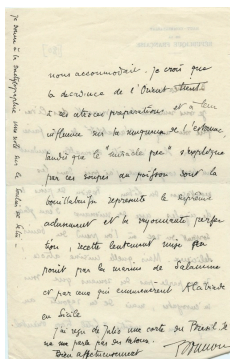 nous accommodait. je crois que
la décadence de l'Orient tient
à ses atroces préparations et à leur
influence sur la muqueuse de l'estomac,
tandis que le "miracle grec" s'explique
par ces soupes au poisson dont la
bouillabaisse représente le suprême
et la rayonnante perfec
tion, recette lentement mise au
point par les marins de Salamine
et par ceux qui emmenèrent Alcibiade
en Sicile
j'ai reçu de Julio une carte du Brésil. Il
ne me parle pas des
Bien affectueusement
je donne à la dactylographie une note sur la